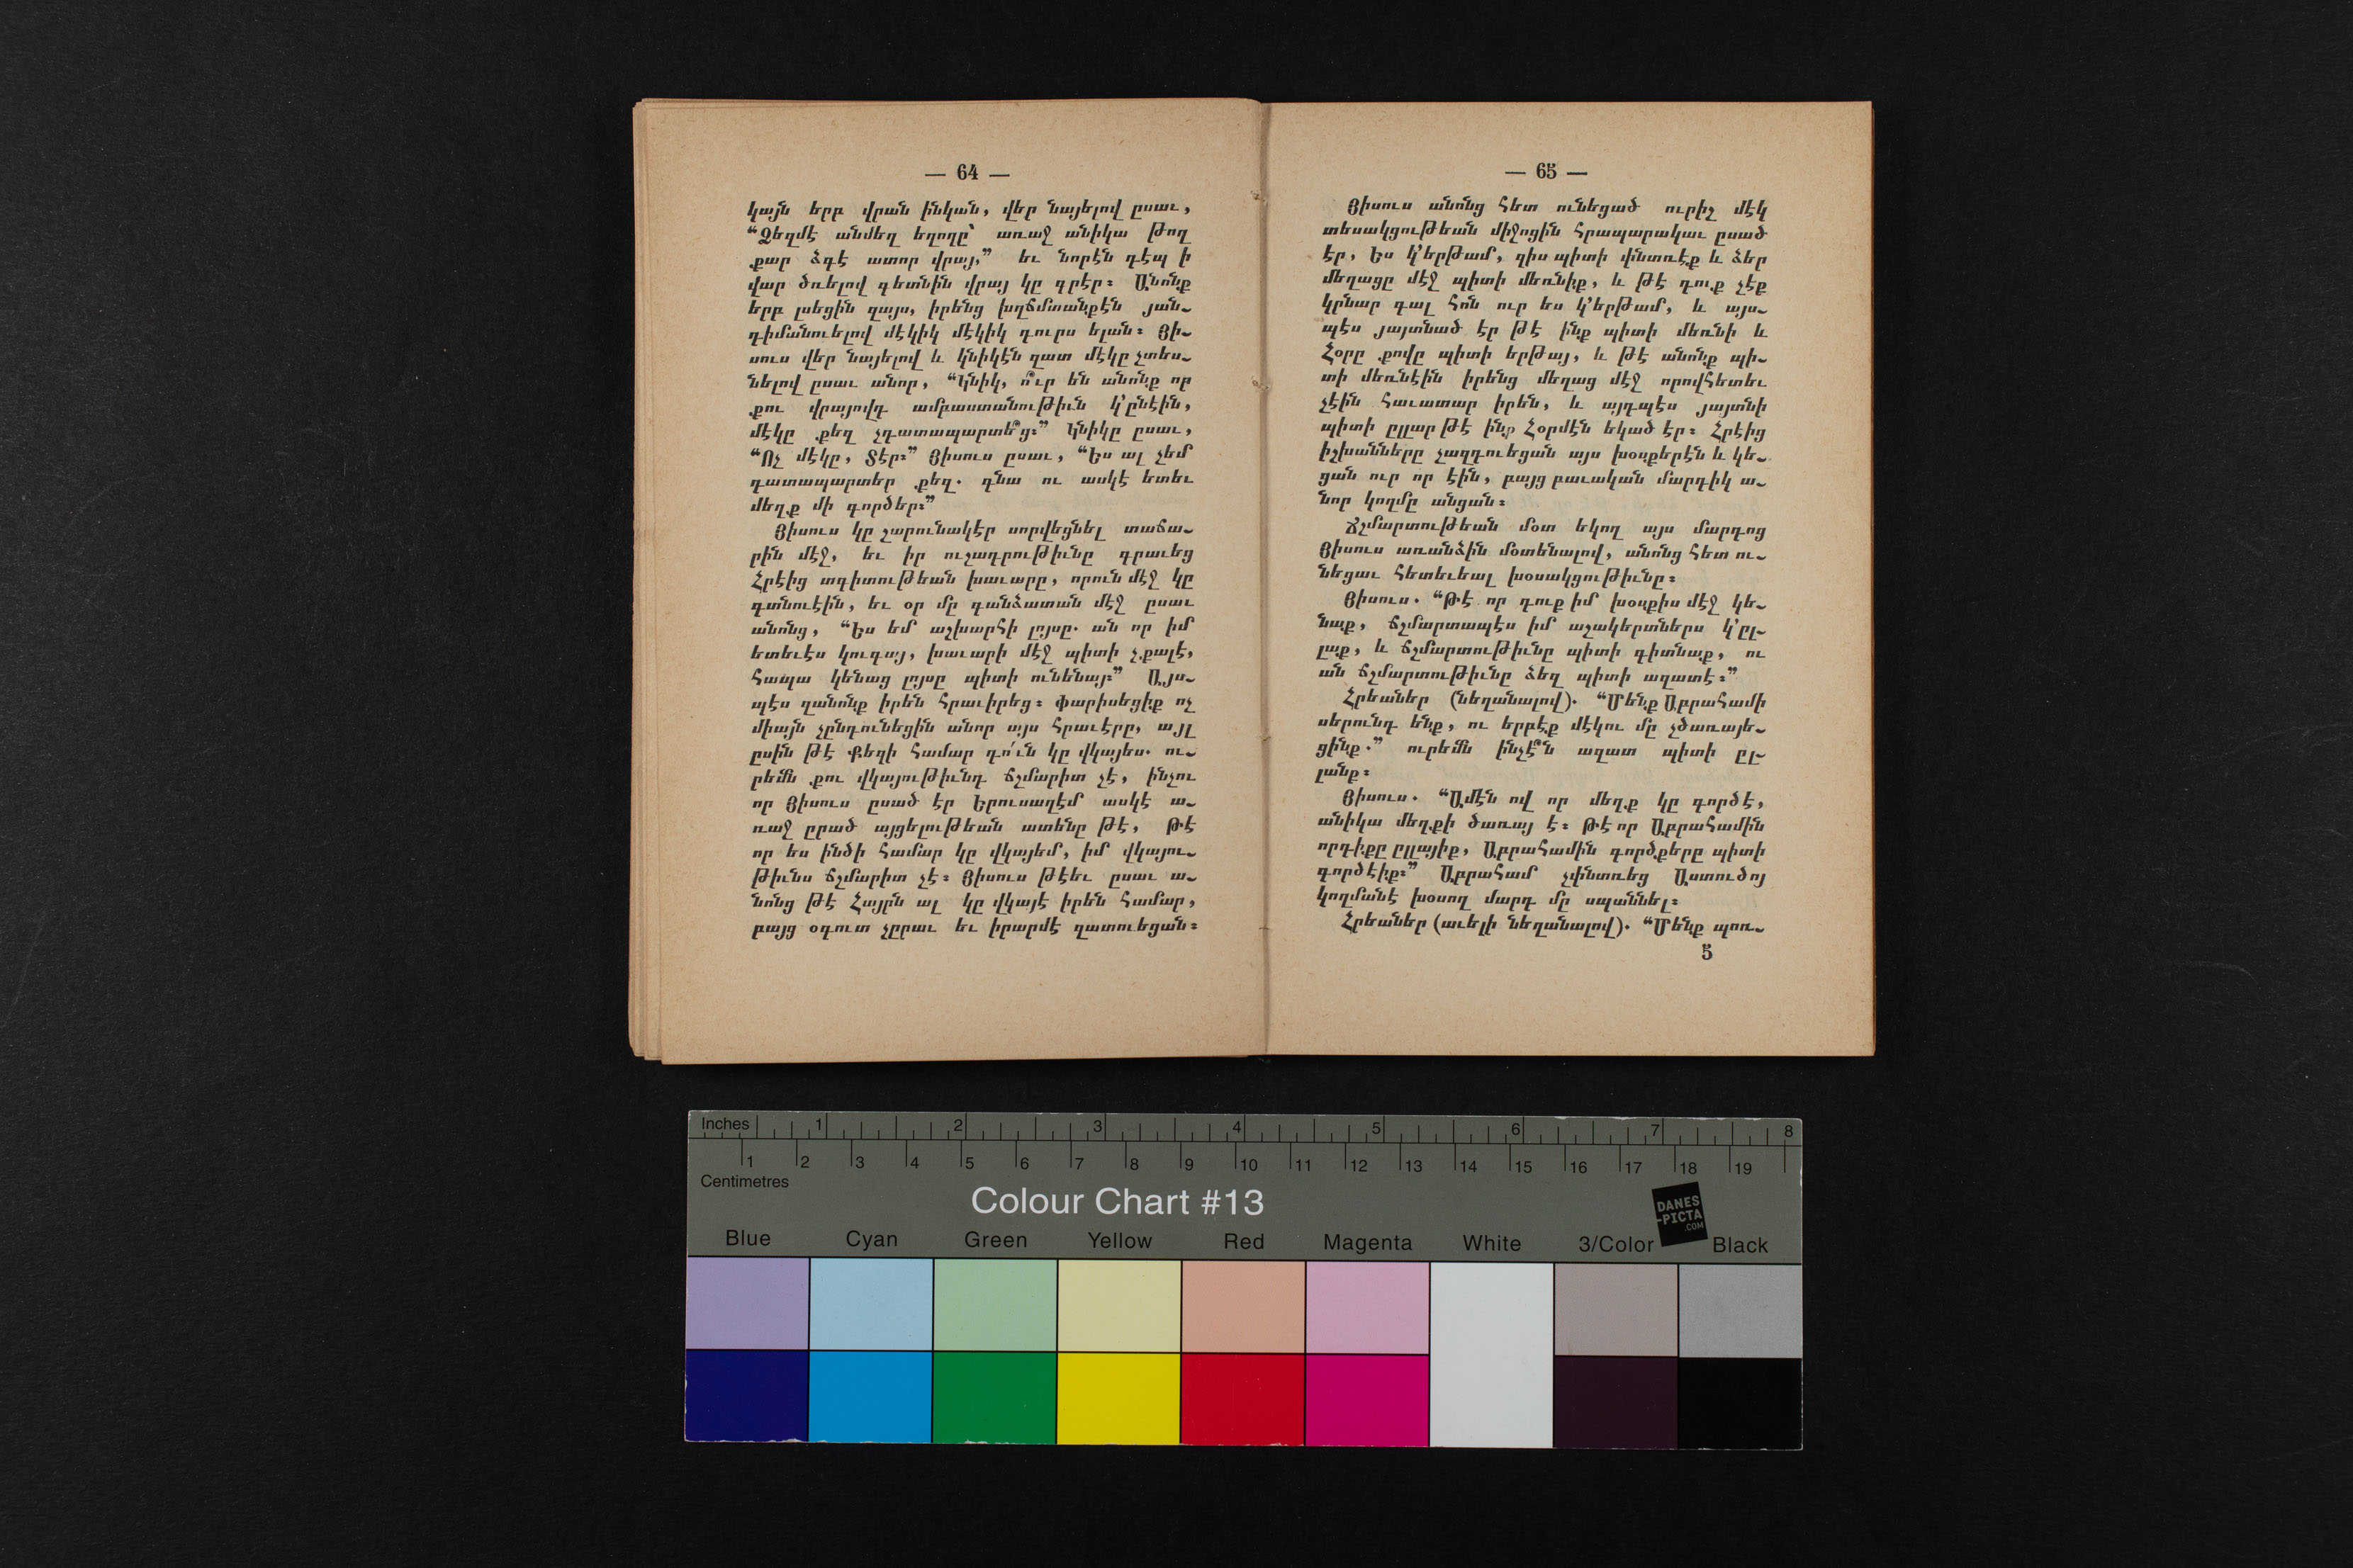 — 64 —
կայն երբ վրան ինկան, վեր նայելով ըսաւ,
“Ձեզմէ անմեղ եղողը՝ առաջ անիկա թող
քար ձգէ ատոր վրայ,” եւ նորէն դէպ ի
վար ծռելով գետնին վրայ կը գրէր։ Անոնք
երբ լսեցին զայս, իրենց խղճմտանքէն յան-
դիմանուելով մէկիկ մէկիկ դուրս ելան։ Յի-
սուս վեր նայելով և կնիկէն զատ մէկը չտես-
նելով ըսաւ անոր, “Կնիկ, ո՞ւր են անոնք որ
քու վրայովդ ամբաստանութիւն կ՚ընէին,
մէկը քեզ չդատապարտե՞ց։” Կնիկը ըսաւ,
“Ոչ մէկը, Տէր։” Յիսուս ըսաւ, “Ես ալ չեմ
դատապարտեր քեզ. գնա ու ասկէ ետեւ
մեղք մի գործեր։”
Յիսուս կը շարունակէր սորվեցնել տաճա-
րին մէջ, եւ իր ուշադրութիւնը գրաւեց
Հրէից տգիտութեան խաւարը, որուն մէջ կը
գտնուէին, եւ օր մը գանձատան մէջ ըսաւ
անոնց, “Ես եմ աշխարհի լոյսը. ան որ իմ
ետեւէս կուգայ, խաւարի մէջ պիտի չքալէ,
հապա կենաց լոյսը պիտի ունենայ։” Այս-
պէս զանոնք իրեն հրաւիրեց։ Փարիսեցիք ոչ
միայն չընդունեցին անոր այս հրաւէրը, այլ
ըսին թէ Քեզի համար դո՛ւն կը վկայես. ու-
րեմն քու վկայութիւնդ ճշմարիտ չէ, ինչու
որ Յիսուս ըսած էր Երուսաղէմ ասկէ ա-
ռաջ ըրած այցելութեան ատենը թէ, Թէ
որ ես ինծի համար կը վկայեմ, իմ վկայու-
թիւնս ճշմարիտ չէ։ Յիսուս թէեւ ըսաւ ա-
նոնց թէ Հայրն ալ կը վկայէ իրեն համար,
բայց օգուտ չըրաւ եւ իրարմէ զատուեցան։
— 65 —
Յիսուս անոնց հետ ունեցած ուրիշ մէկ
տեսակցութեան միջոցին հրապարակաւ ըսած
էր, Ես կ՚երթամ, զիս պիտի փնտռէք և ձեր
մեղացը մէջ պիտի մեռնիք, և թէ դուք չէք
կրնար գալ հոն ուր ես կ՚երթամ, և այս-
պէս յայտնած էր թէ ինք պիտի մեռնի և
Հօրը քովը պիտի երթայ, և թէ անոնք պի-
տի մեռնէին իրենց մեղաց մէջ որովհետեւ
չէին հաւատար իրեն, և այդպէս յայտնի
պիտի ըլլար թէ ինք Հօրմէն եկած էր։ Հրէից
իշխանները չազդուեցան այս խօսքերէն և կե-
ցան ուր որ էին, բայց բաւական մարդիկ ա-
նոր կողմը անցան։
Ճշմարտութեան մօտ եկող այս մարդոց
Յիսուս առանձին մօտենալով, անոնց հետ ու-
նեցաւ հետեւեալ խօսակցութիւնը։
Յիսուս. “Թէ որ դուք իմ խօսքիս մէջ կե-
նաք, ճշմարտապէս իմ աշակերտներս կ՚ըլ-
լաք, և ճշմարտութիւնը պիտի գիտնաք, ու
ան ճշմարտութիւնը ձեզ պիտի ազատէ։”
Հրեաներ (նեղանալով). “Մենք Աբրահամի
սերունդ ենք, ու երբէք մէկու մը չծառայե-
ցինք.” ուրեմն ինչէ՞ն ազատ պիտի ըլ-
լանք։
Յիսուս. “Ամէն ով որ մեղք կը գործէ,
անիկա մեղքի ծառայ է։ Թէ որ Աբրահամին
որդիքը ըլլայիք, Աբրահամին գործքերը պիտի
գործէիք։” Աբրահամ չփնտռեց Աստուծոյ
կողմանէ խօսող մարդ մը սպաննել։
Հրեաներ (աւելի նեղանալով). “Մենք պոռ-
5
Inches 1 2 3 4 5 6 7 8
1 2 3 4 5 6 7 8 9 10 11 12 13 14 15 16 17 18 19
Centimetres
Colour Chart #13
DANES
-PICTA
.COM
Blue Cyan Green Yellow Red Magenta White 3/Color Black